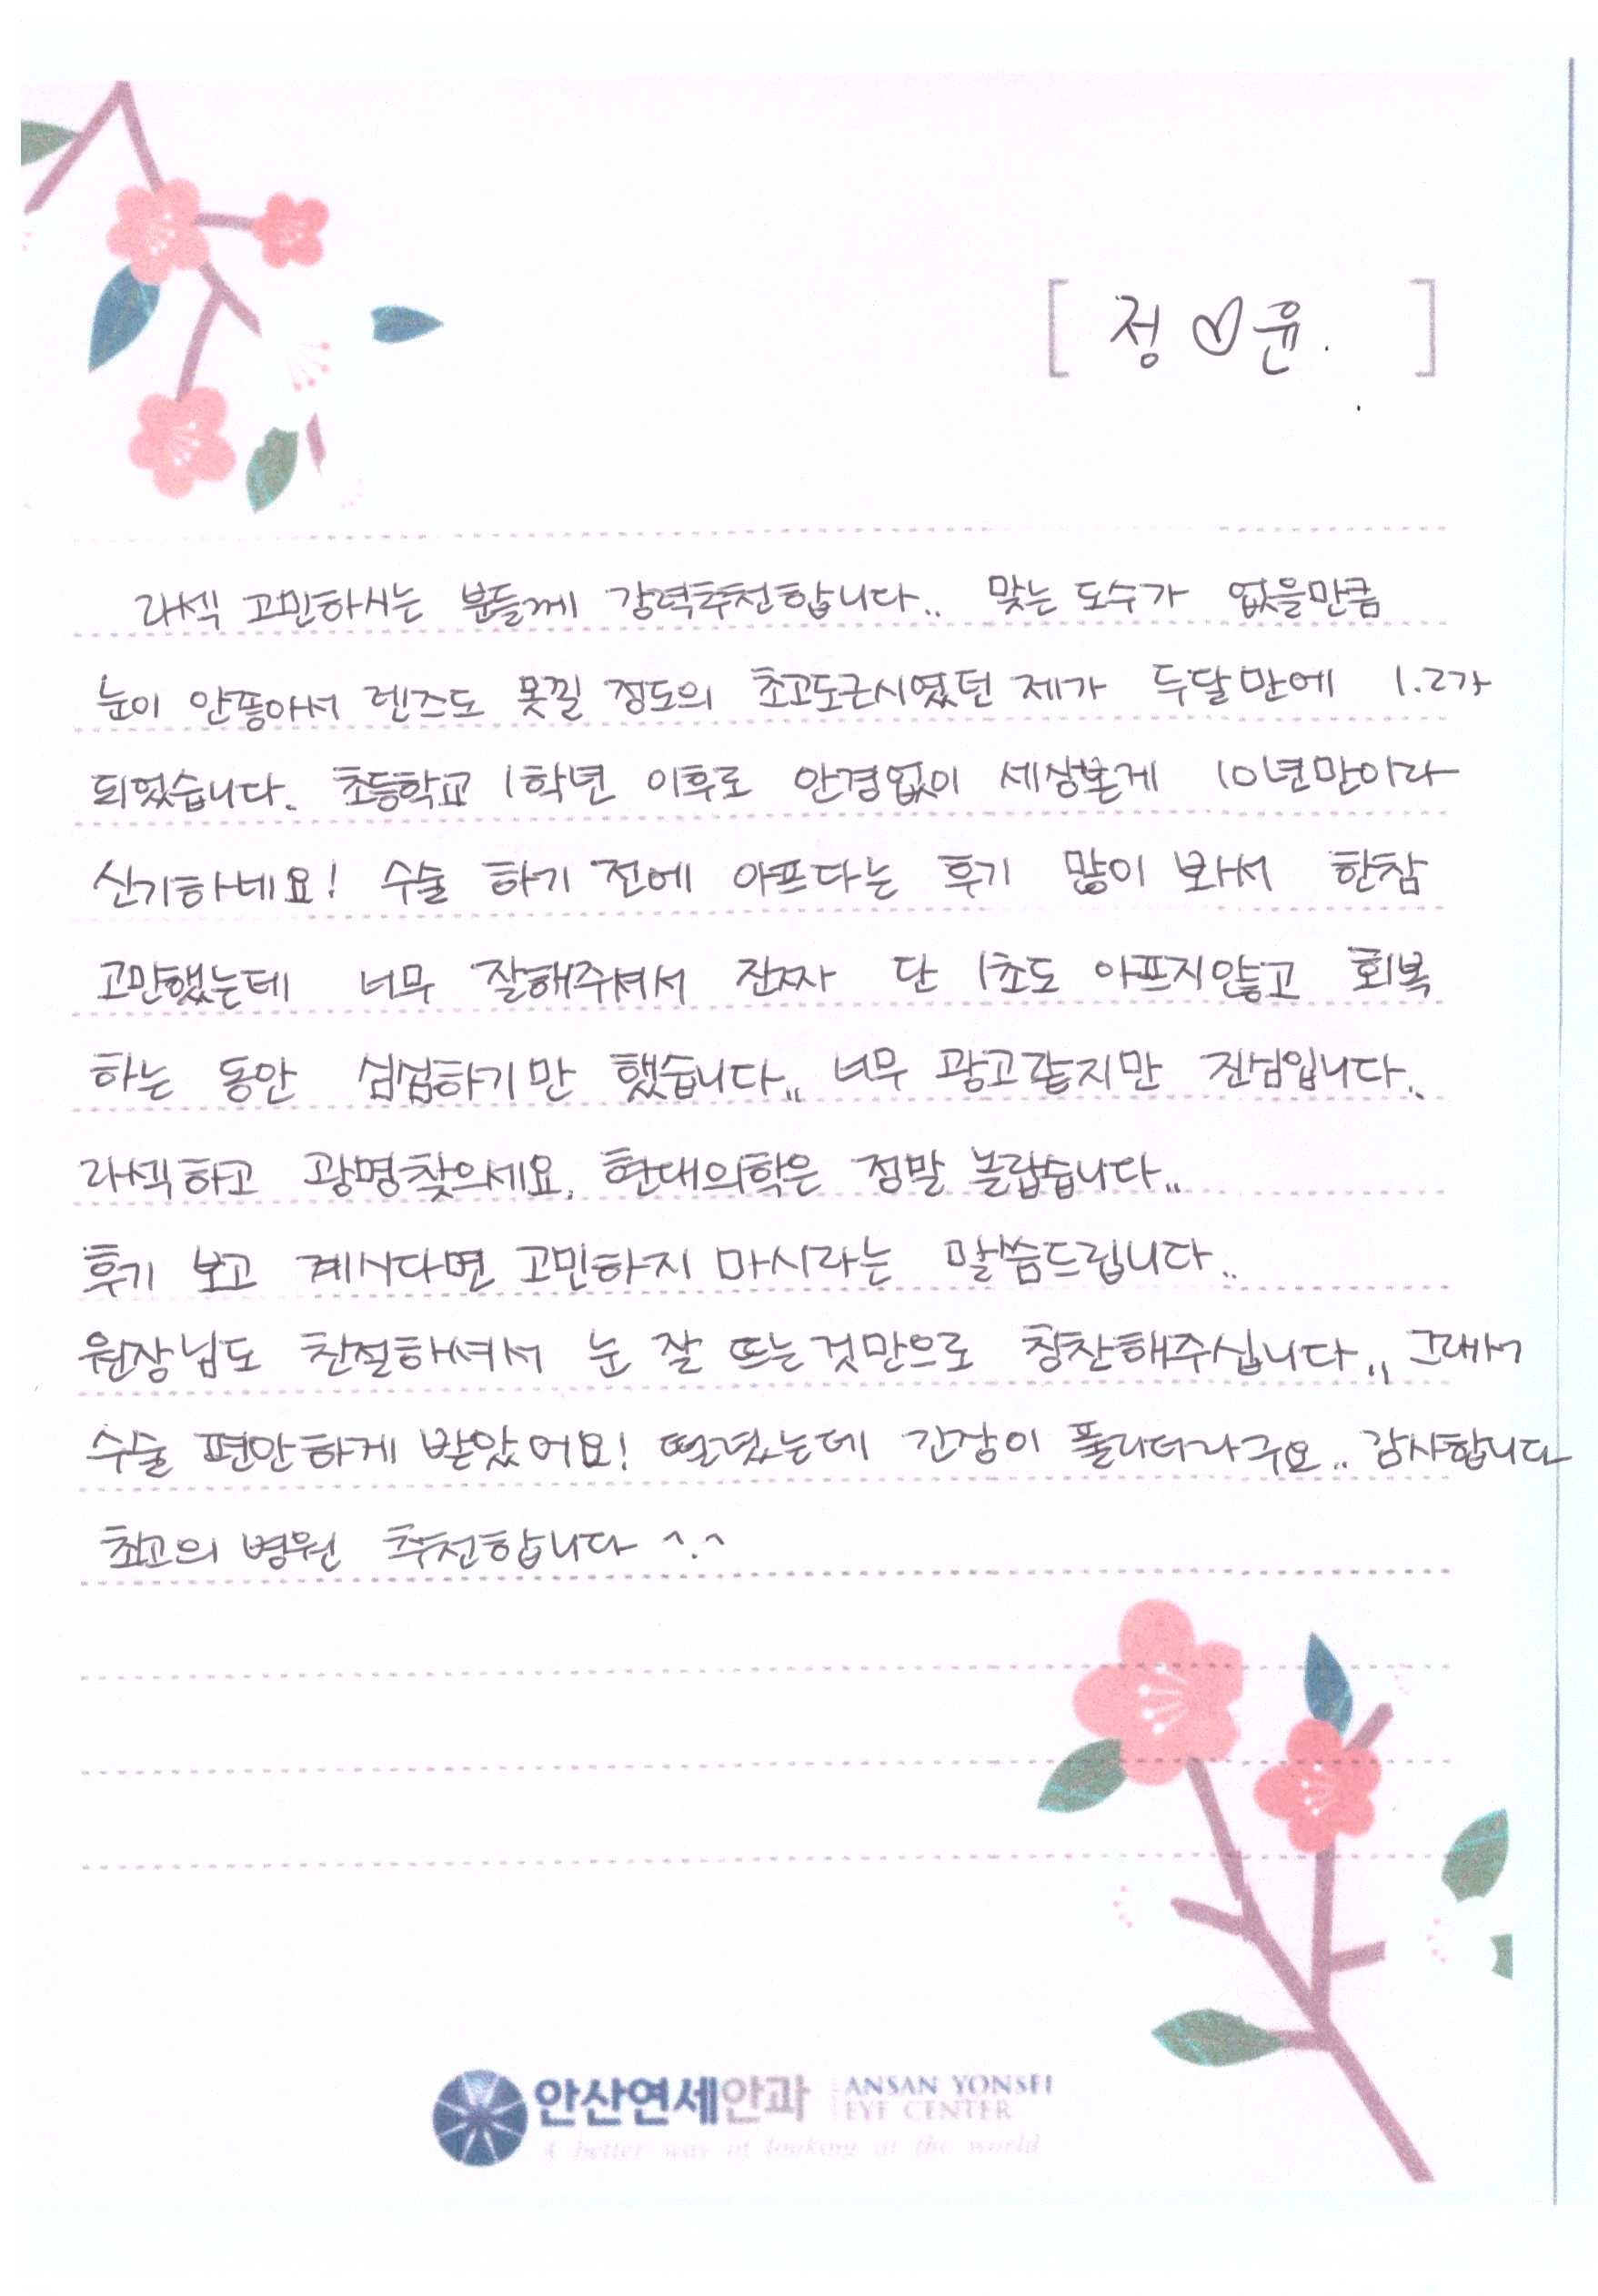 [ 정♡윤. ]
라섹 고민하시는 분들께 강력추천합니다.. 맞는 도수가 없을만큼
눈이 안좋아서 렌즈도 못낄 정도의 초고도근시였던 제가 두달만에 1.2가
되었습니다. 초등학교 1학년 이후로 안경없이 세상본게 10년만이라
신기하네요! 수술 하기 전에 아프다는 후기 많이 봐서 한참
고민했는데 너무 잘해주셔서 진짜 단 1초도 아프지않고 회복
하는 동안 심심하기만 했습니다.. 너무 광고같지만 진심입니다.
라섹하고 광명찾으세요. 현대의학은 정말 놀랍습니다..
후기 보고 계시다면 고민하지 마시라는 말씀드립니다..
원장님도 친절하셔서 눈 잘 뜨는것만으로 칭찬해주십니다.. 그래서
수술 편안하게 받았어요! 떨렸는데 긴장이 풀리더라구요.. 감사합니다
최고의 병원 추천합니다 ^.^
안산연세안과 ANSAN YONSEI
EYE CENTER
A better way of looking at the world